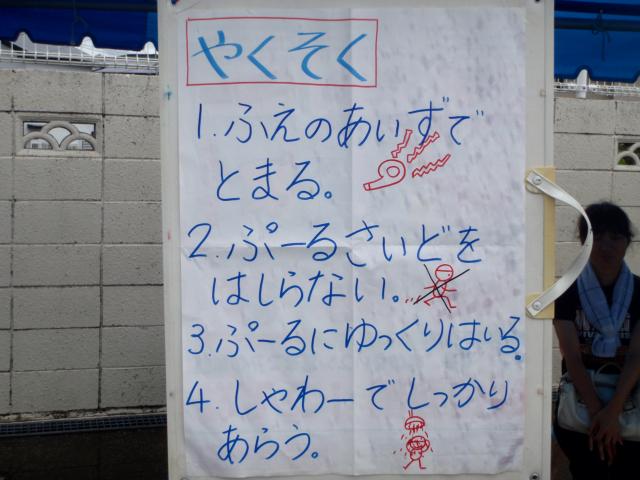 やくそく
1.ふえのあいずで
とまる。
2.ぷーるさいどを
はしらない。
3.ぷーるにゆっくりはいる。
4.しゃわーでしっかり
あらう。